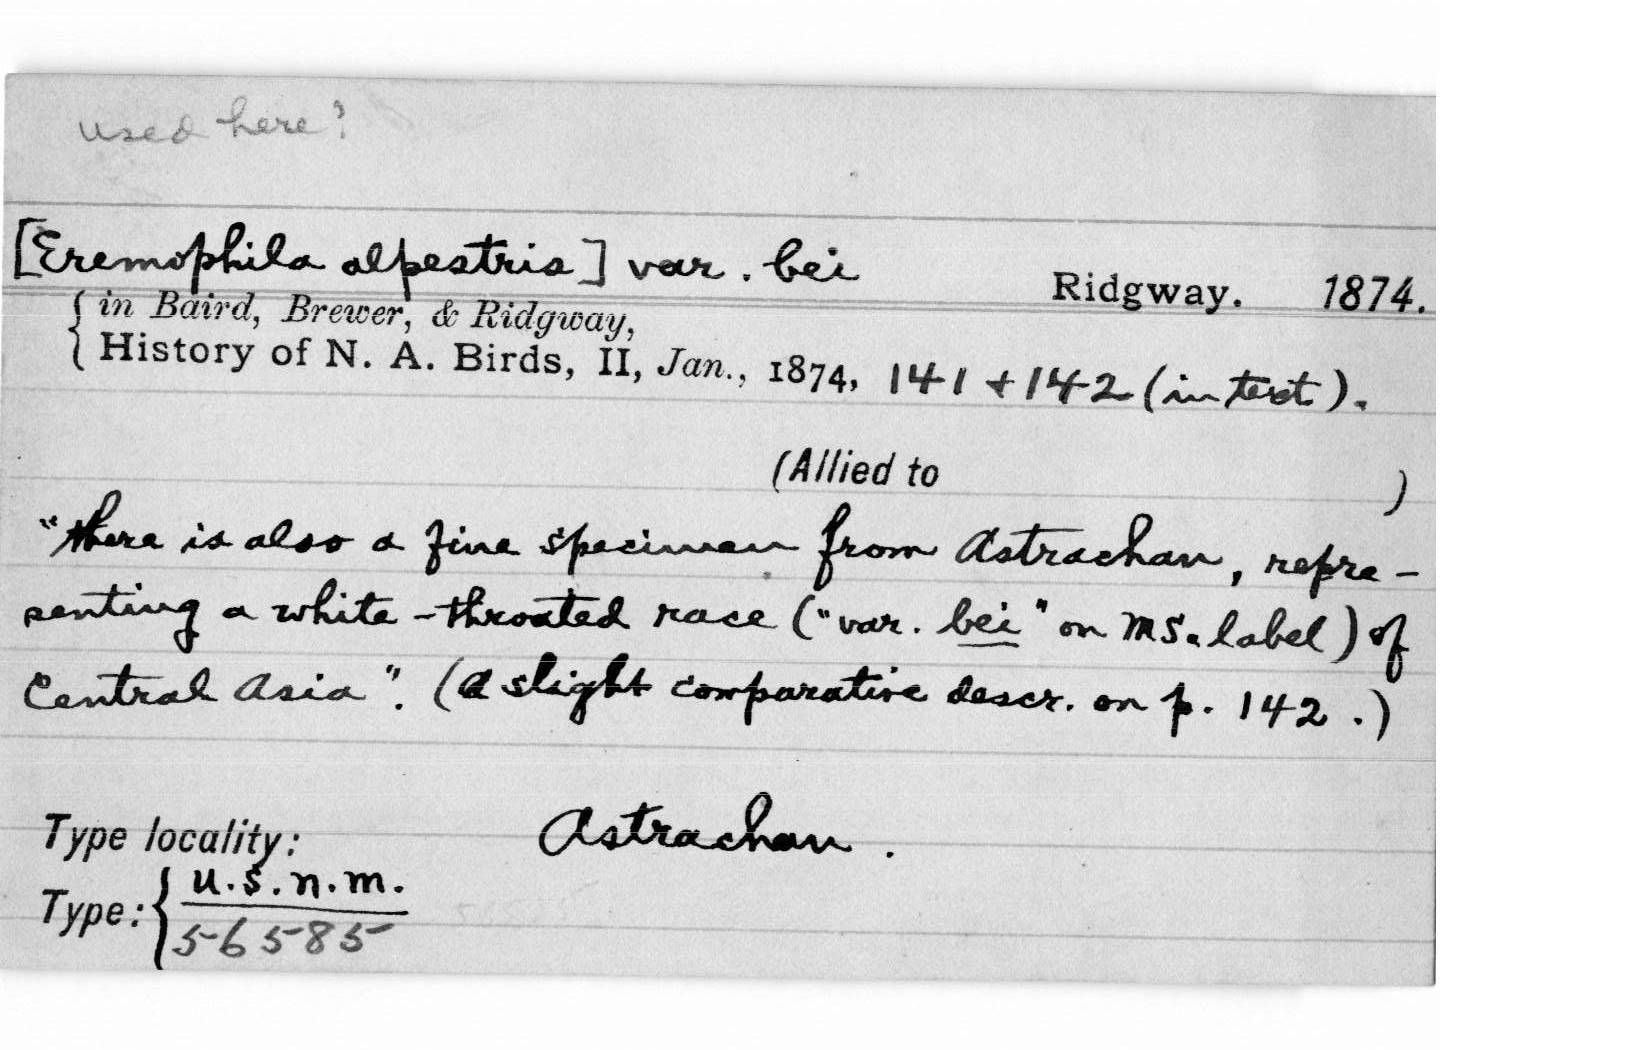 used here?
[Eremophila alpestris] var. bei Ridgway. 1874.
{ in Baird, Brewer, & Ridgway,
History of N. A. Birds, II, Jan., 1874, 141 + 142 (in text).
(Allied to )
"there is also a fine specimen from Astrachan, repre-
senting a white-throated race ("var. bei" on MS. label) of
Central Asia". (A slight comparative descr. on p. 142.)
Type locality: Astrachan.
Type: { U.S.N.M.
56585